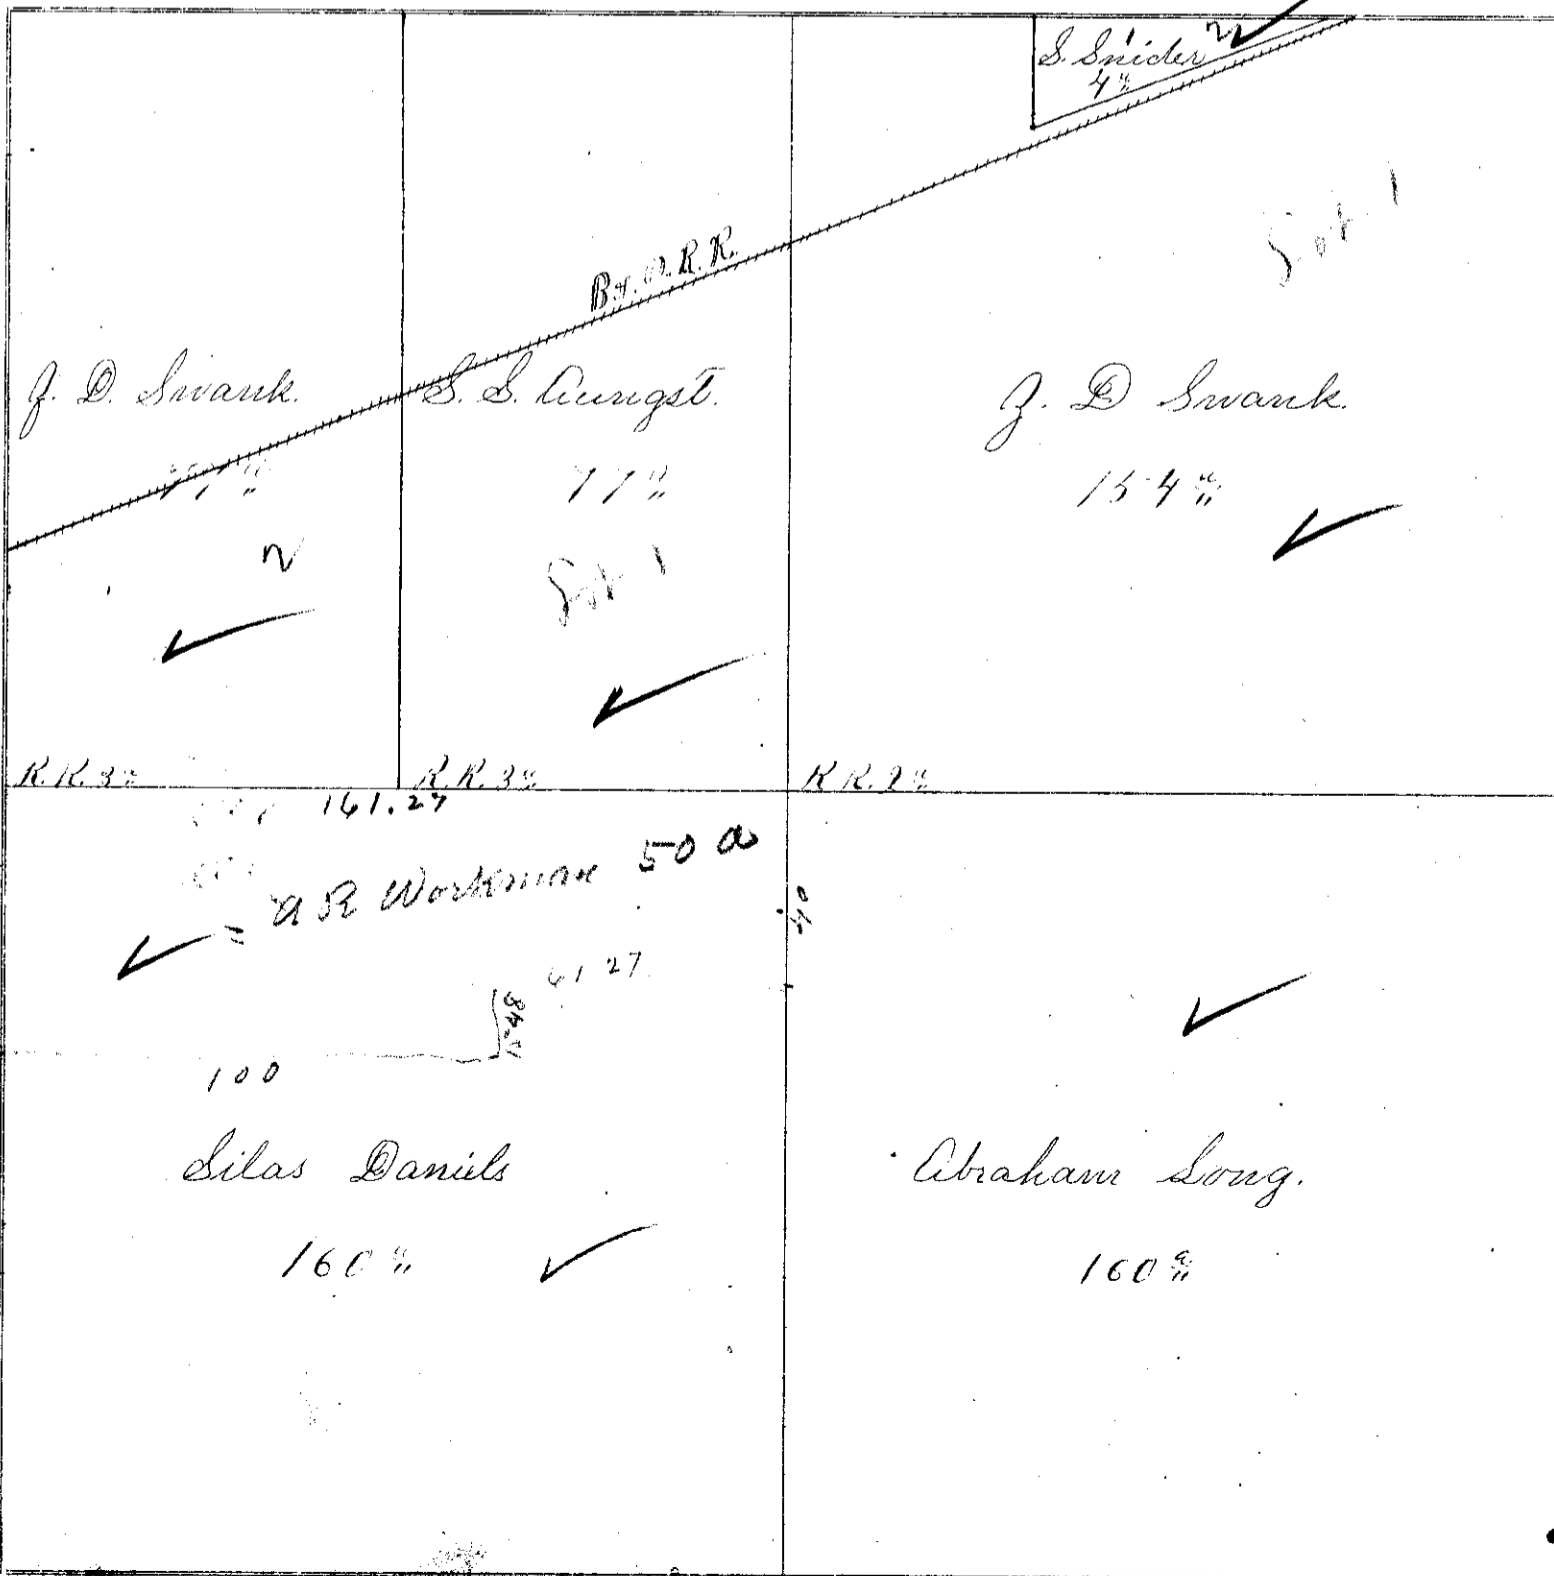 S. Snider
4 a
B. & O. R. R.
J. D. Swank.
77 a
2
S. S. Aungst.
77 a
Lot 1
Lot 1
J. D Swank.
154 a
R. R. 3 a
R. R. 3 a
R R. 2 a
161.27
A R Workman 50 a
40
61 27
100
Silas Daniels
160 a
Abraham Long.
160 a